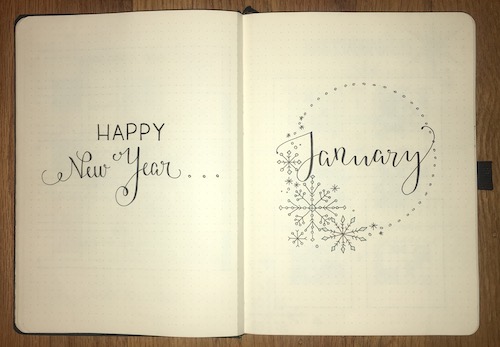 HAPPY
New Year...
January